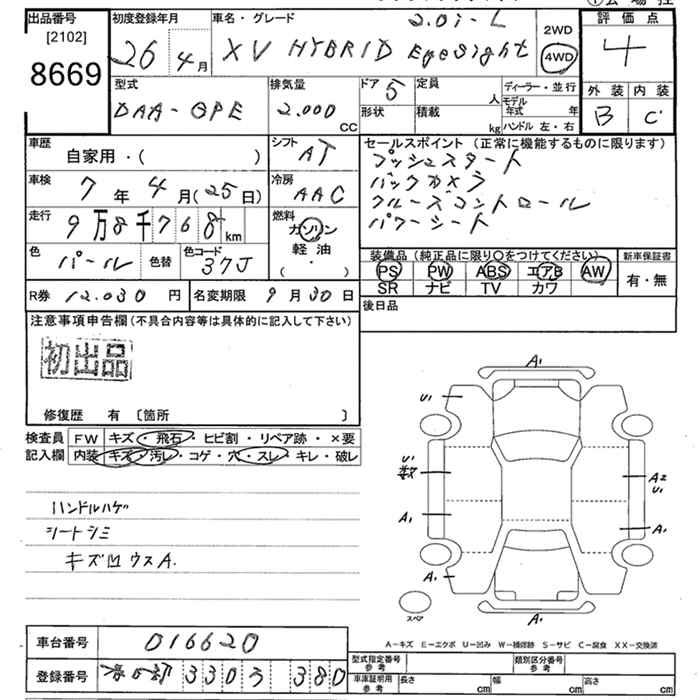 出品番号 [2102] 8669
初度登録年月 26年 4月
車名・グレード 2.0i-L
XV HYBRID EyeSight
2WD 4WD
評価点 4
外装 内装
B C
型式 DAA-GPE
排気量 2.000 CC
ドア 5 形状
定員 人
積載 kg
ディーラー・並行
モデル年式 年
ハンドル 左・右
車歴 自家用・( )
シフト AT
セールスポイント (正常に機能するものに限ります)
プッシュスタート
バックカメラ
クルーズコントロール
パワーシート
車検 7年 4月(25日)
冷房 AAC
走行 9万8千768km
燃料 ガソリン 軽油 ( ・ )
色 パール 色替 色コード 37J
装備品 (純正品に限り〇をつけてください)
PS PW ABS エアB AW
SR ナビ TV カワ
新車保証書 有・無
R券 12.030円 名変期限 9月30日
後日品
注意事項申告欄 (不具合内容等は具体的に記入して下さい)
初出品
修復歴 有 〔箇所 〕
検査員記入欄
FW キズ・飛石・ヒビ割・リペア跡・×要
内装 キズ・汚レ・コゲ・穴・スレ・キレ・破レ
ハンドルハゲ
シートシミ
キズ凹ウスA.
A1
U1
U1
A2
U1
A1
A1
A1
A1
A1
スペア
A-キズ E-エクボ U-凹み W-補修跡 S-サビ C-腐食 XX-交換済
車台番号 016620
登録番号 330 380
型式指定番号 参考
類別区分番号 参考
車庫証明用 参考 長さ cm 幅 cm 高さ cm